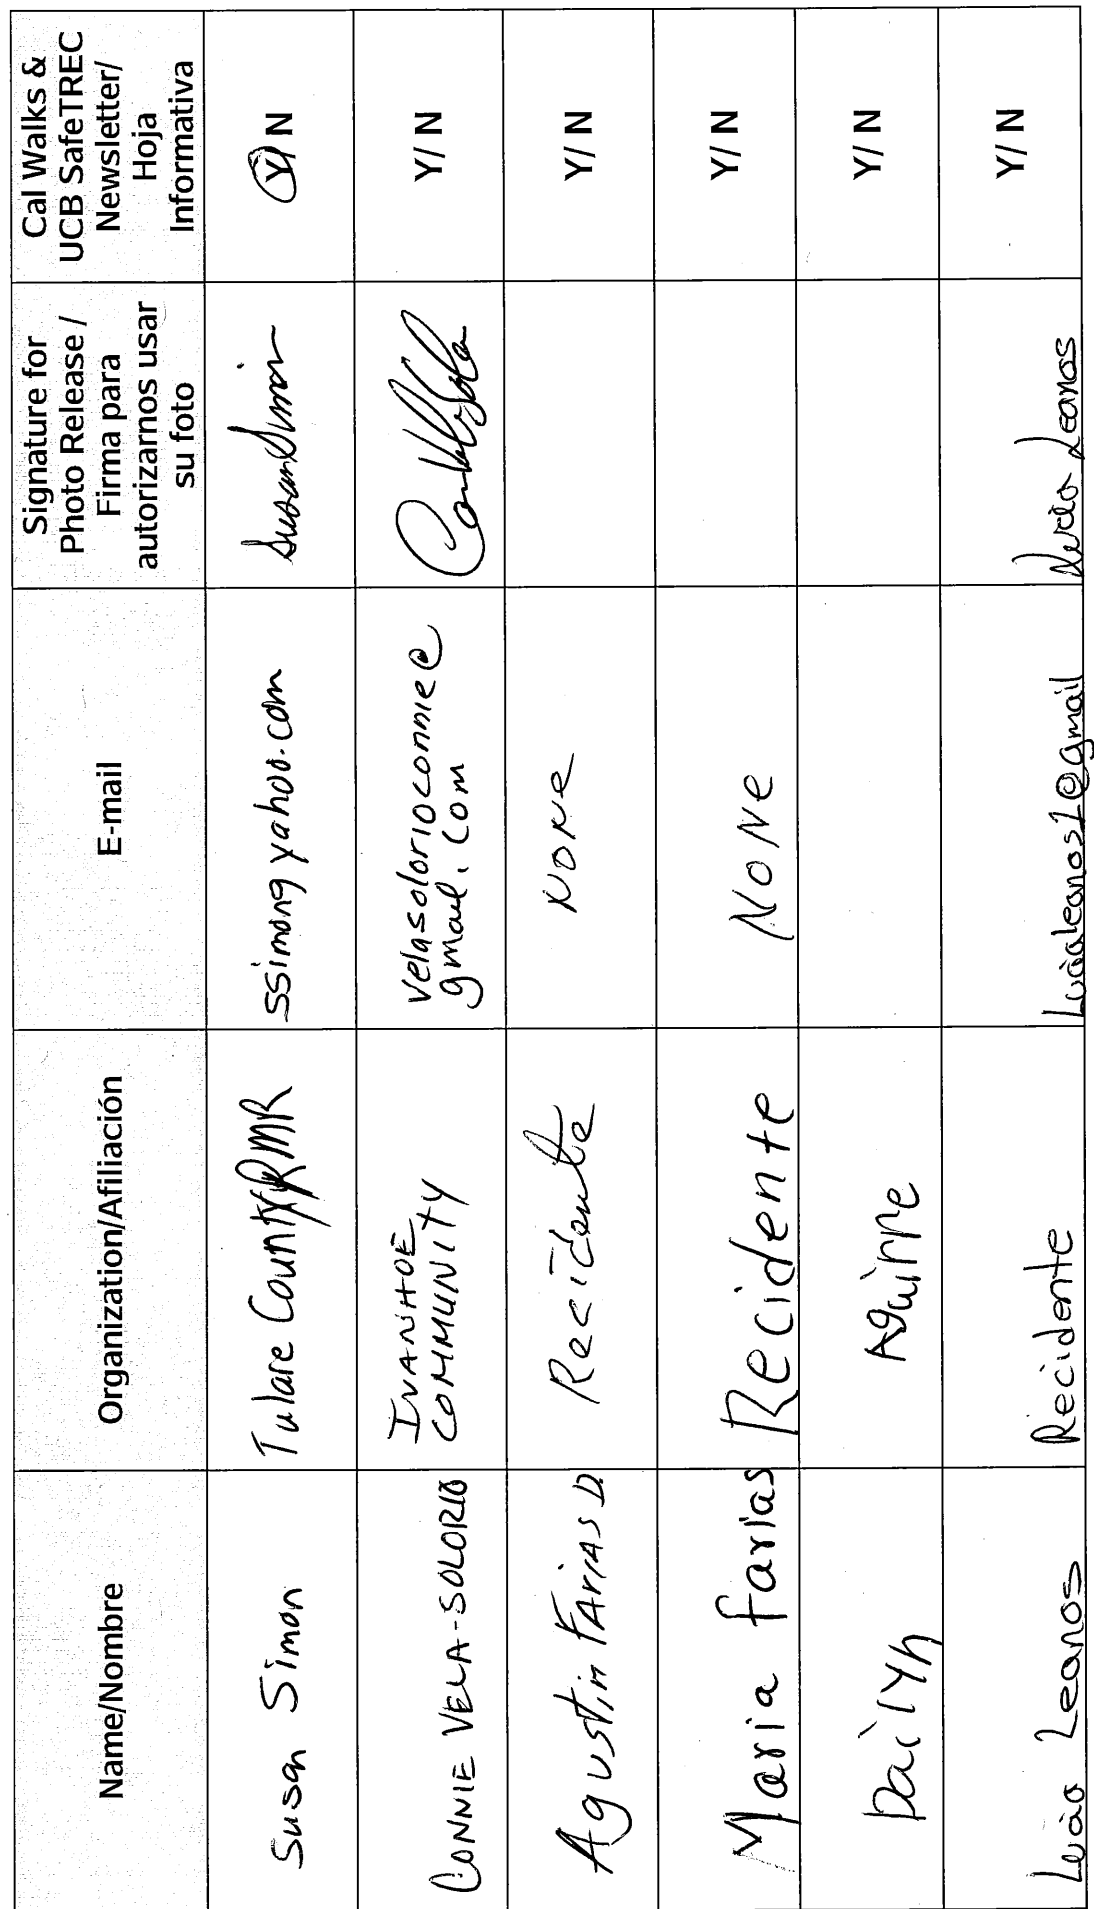 Name/Nombre
Organization/Afiliación
E-mail
Signature for
Photo Release /
Firma para
autorizarnos usar
su foto
Cal Walks &
UCB SafeTREC
Newsletter/
Hoja
Informativa
Susan Simon
Tulare County RMR
ssimong yahoo.com
Susan Simon
Y/ N
CONNIE VELA-SOLORIO
IVANHOE
COMMUNITY
velasolorioconnie@
gmail.com
Y/ N
Agustin FAriAS D.
Recidente
NONe
Y/ N
Maria farias
Recidente
NONe
Y/ N
Aguirre
Y/ N
Leanos
Recidente
@gmail
Leanos
Y/ N